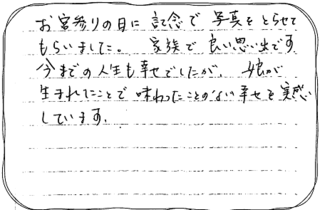 お宮参りの日に記念で写真をとらせて
もらいました。 家族で良い思い出です
今までの人生も幸せでしたが、娘が
生まれてきたことで味わったことのない幸せを実感
しています.